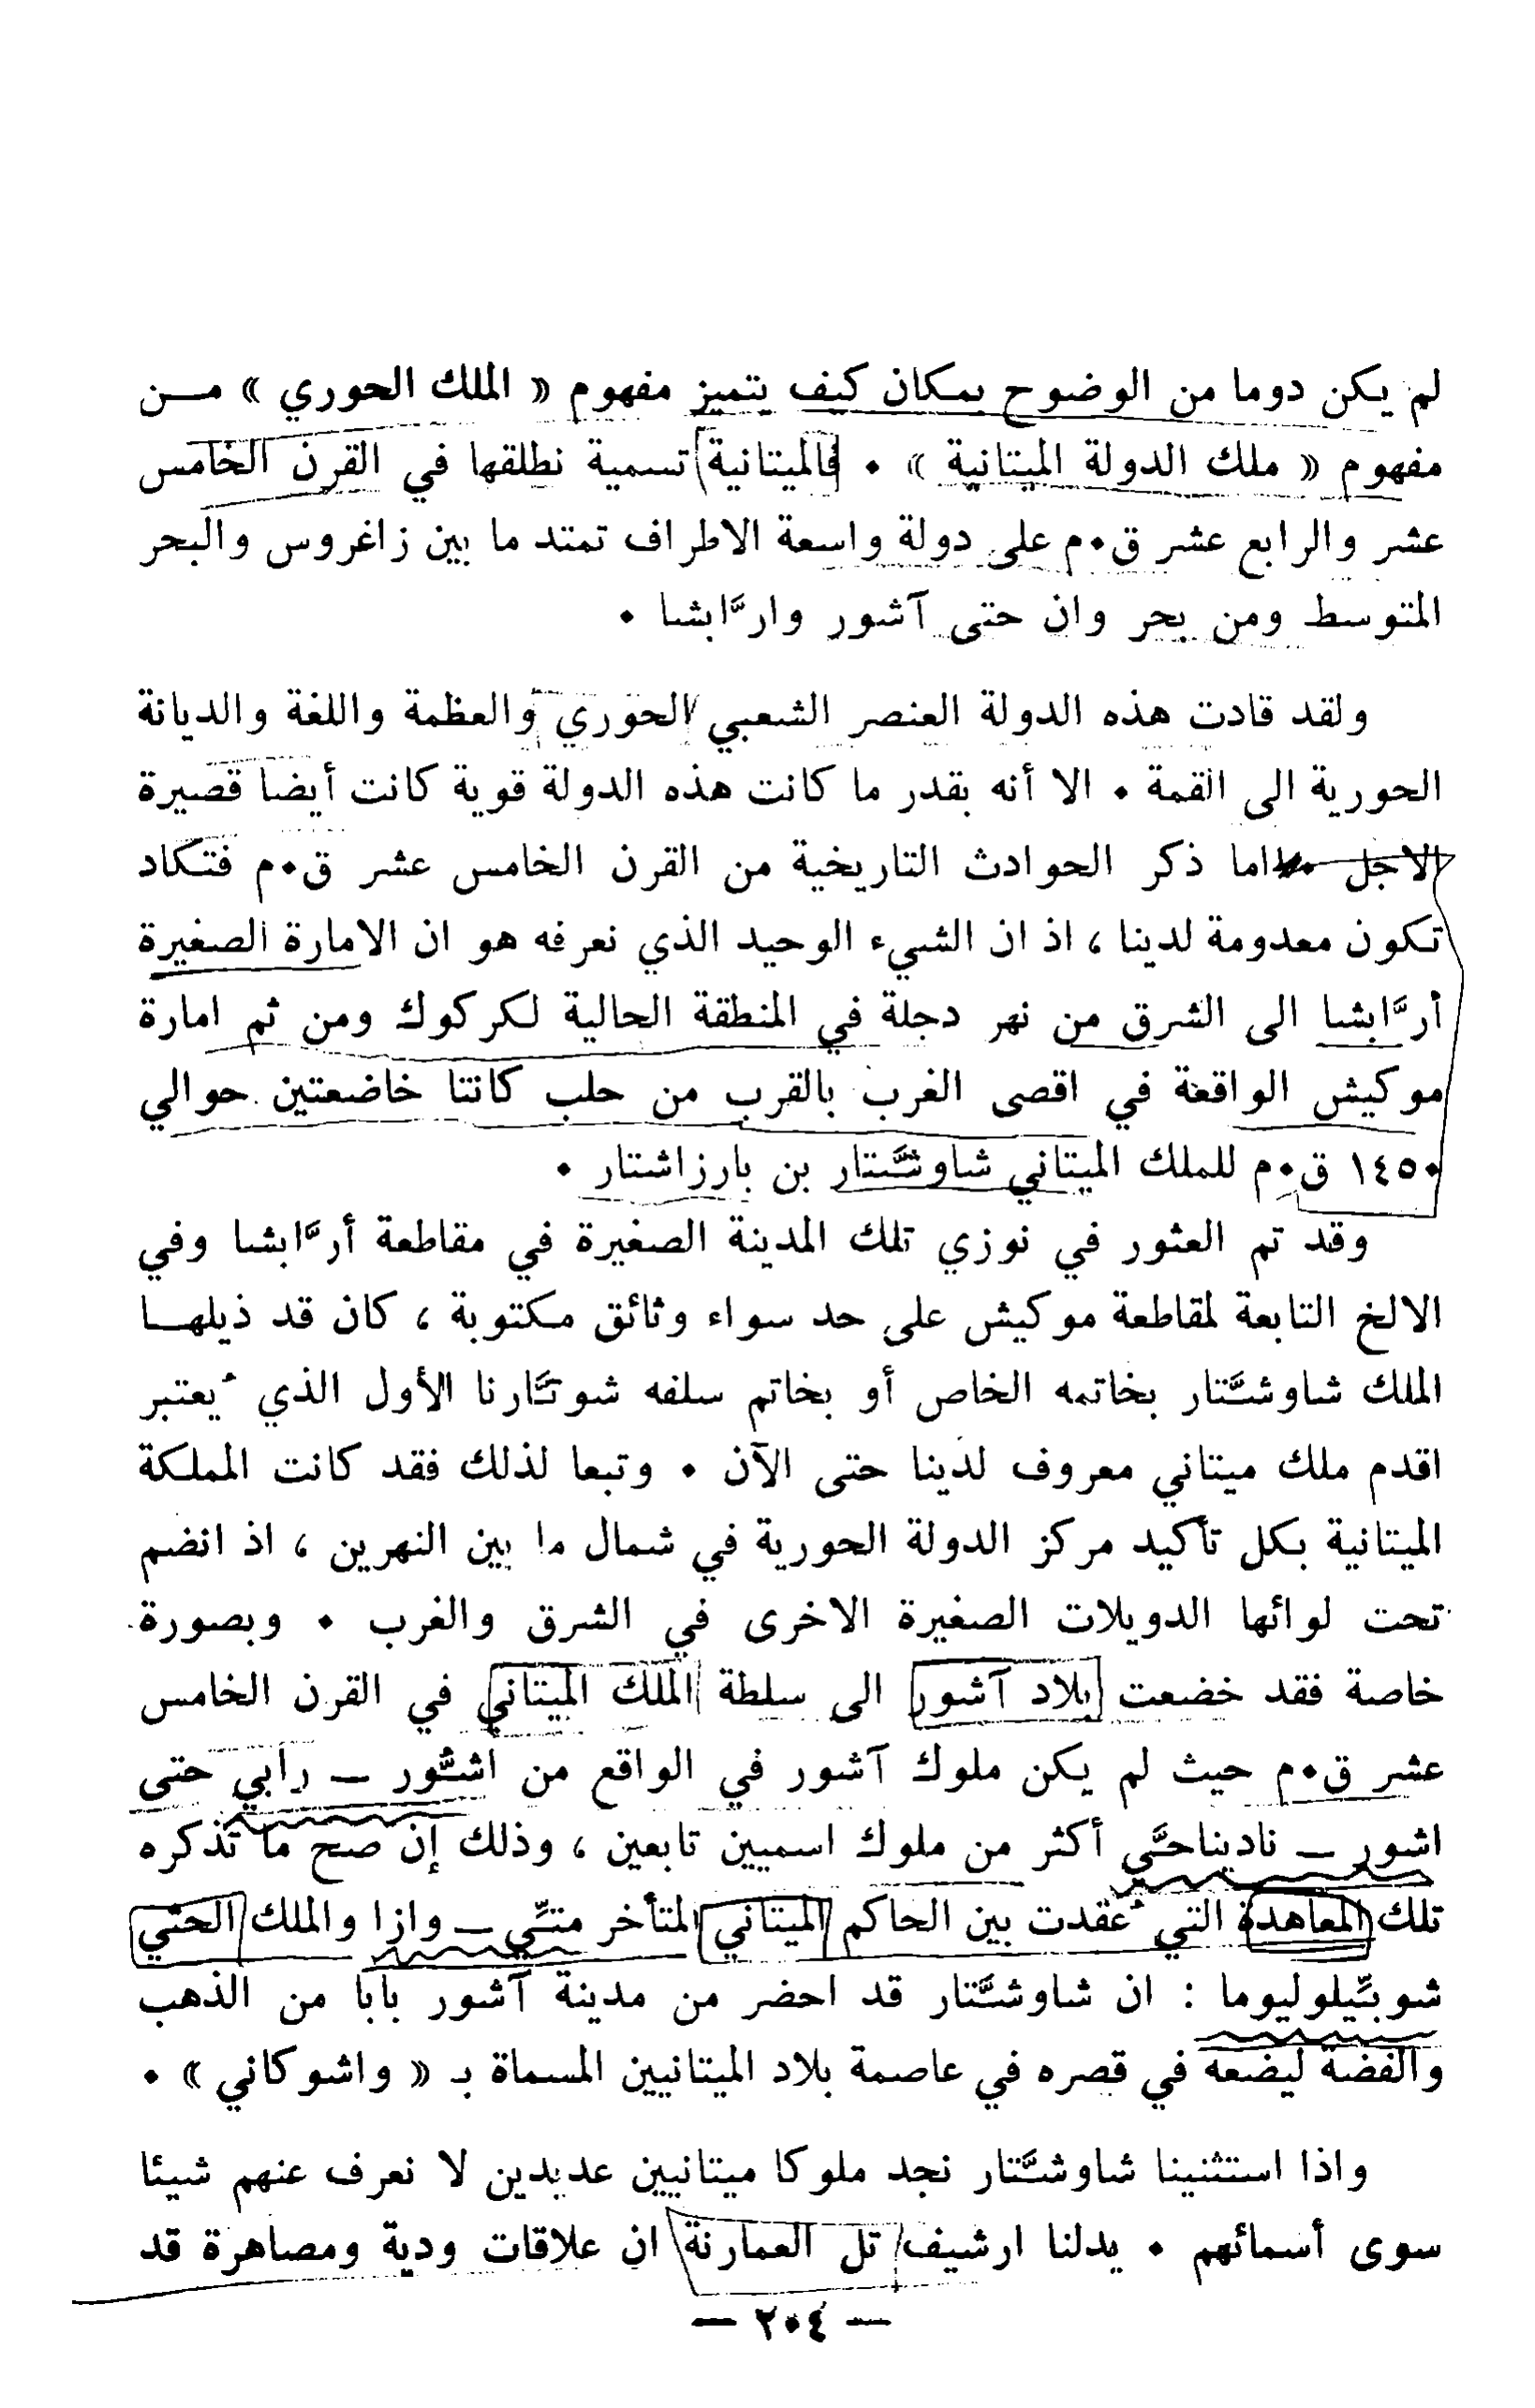 لم يكن دوما من الوضوح بمكان كيف يتميز مفهوم « الملك الحوري » مــن
مفهوم « ملك الدولة الميتانية » . فالميتانية تسمية نطلقها في القرن الخامس
عشر والرابع عشر ق.م على دولة واسعة الاطراف تمتد ما بين زاغروس والبحر
المتوسط ومن بحر وان حتى آشور وارَّابشا .
ولقد قادت هذه الدولة العنصر الشعبي الحوري والعظمة واللغة والديانة
الحورية الى القمة . الا أنه بقدر ما كانت هذه الدولة قوية كانت أيضا قصيرة
الاجل . اما ذكر الحوادث التاريخية من القرن الخامس عشر ق.م فتكاد
تكون معدومة لدينا ، اذ ان الشيء الوحيد الذي نعرفه هو ان الامارة الصغيرة
أرَّابشا الى الشرق من نهر دجلة في المنطقة الحالية لكركوك ومن ثم امارة
موكيش الواقعة في اقصى الغرب بالقرب من حلب كانتا خاضعتين حوالي
١٤٥٠ ق.م للملك الميتاني شاوشَّتار بن بارزاشتار .
وقد تم العثور في نوزي تلك المدينة الصغيرة في مقاطعة أرَّابشا وفي
الالخ التابعة لمقاطعة موكيش على حد سواء وثائق مكتوبة ، كان قد ذيلهــا
الملك شاوشَّتار بخاتمه الخاص أو بخاتم سلفه شوتَّارنا الأول الذي يُعتبر
اقدم ملك ميتاني معروف لدينا حتى الآن . وتبعا لذلك فقد كانت المملكة
الميتانية بكل تأكيد مركز الدولة الحورية في شمال ما بين النهرين ، اذ انضم
تحت لوائها الدويلات الصغيرة الاخرى في الشرق والغرب . وبصورة
خاصة فقد خضعت بلاد آشور الى سلطة الملك الميتاني في القرن الخامس
عشر ق.م حيث لم يكن ملوك آشور في الواقع من اشُّور – رابي حتى
اشور – ناديناحَّي أكثر من ملوك اسميين تابعين ، وذلك إن صح ما تذكره
تلك المعاهدة التي عُقدت بين الحاكم الميتاني المتأخر متِّي – وازا والملك الحثي
شوبِّيلوليوما : ان شاوشَّتار قد احضر من مدينة آشور بابا من الذهب
والفضة ليضعه في قصره في عاصمة بلاد الميتانيين المسماة بـ « واشوكاني » .
واذا استثنينا شاوشَّتار نجد ملوكا ميتانيين عديدين لا نعرف عنهم شيئا
سوى أسمائهم . يدلنا ارشيف تل العمارنة ان علاقات ودية ومصاهرة قد
— ٢٠٤ —